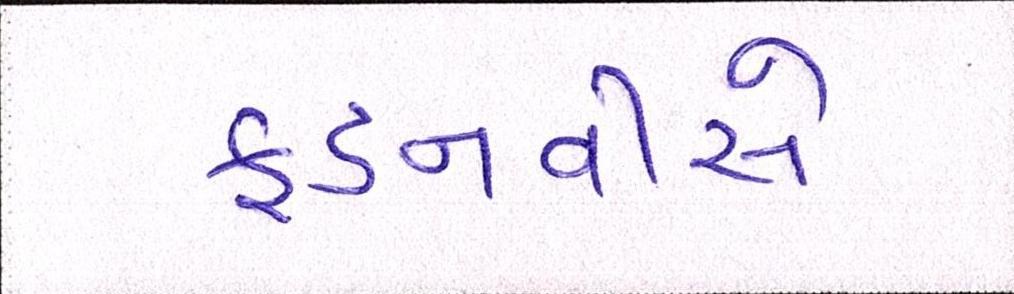 ફડનવીસે